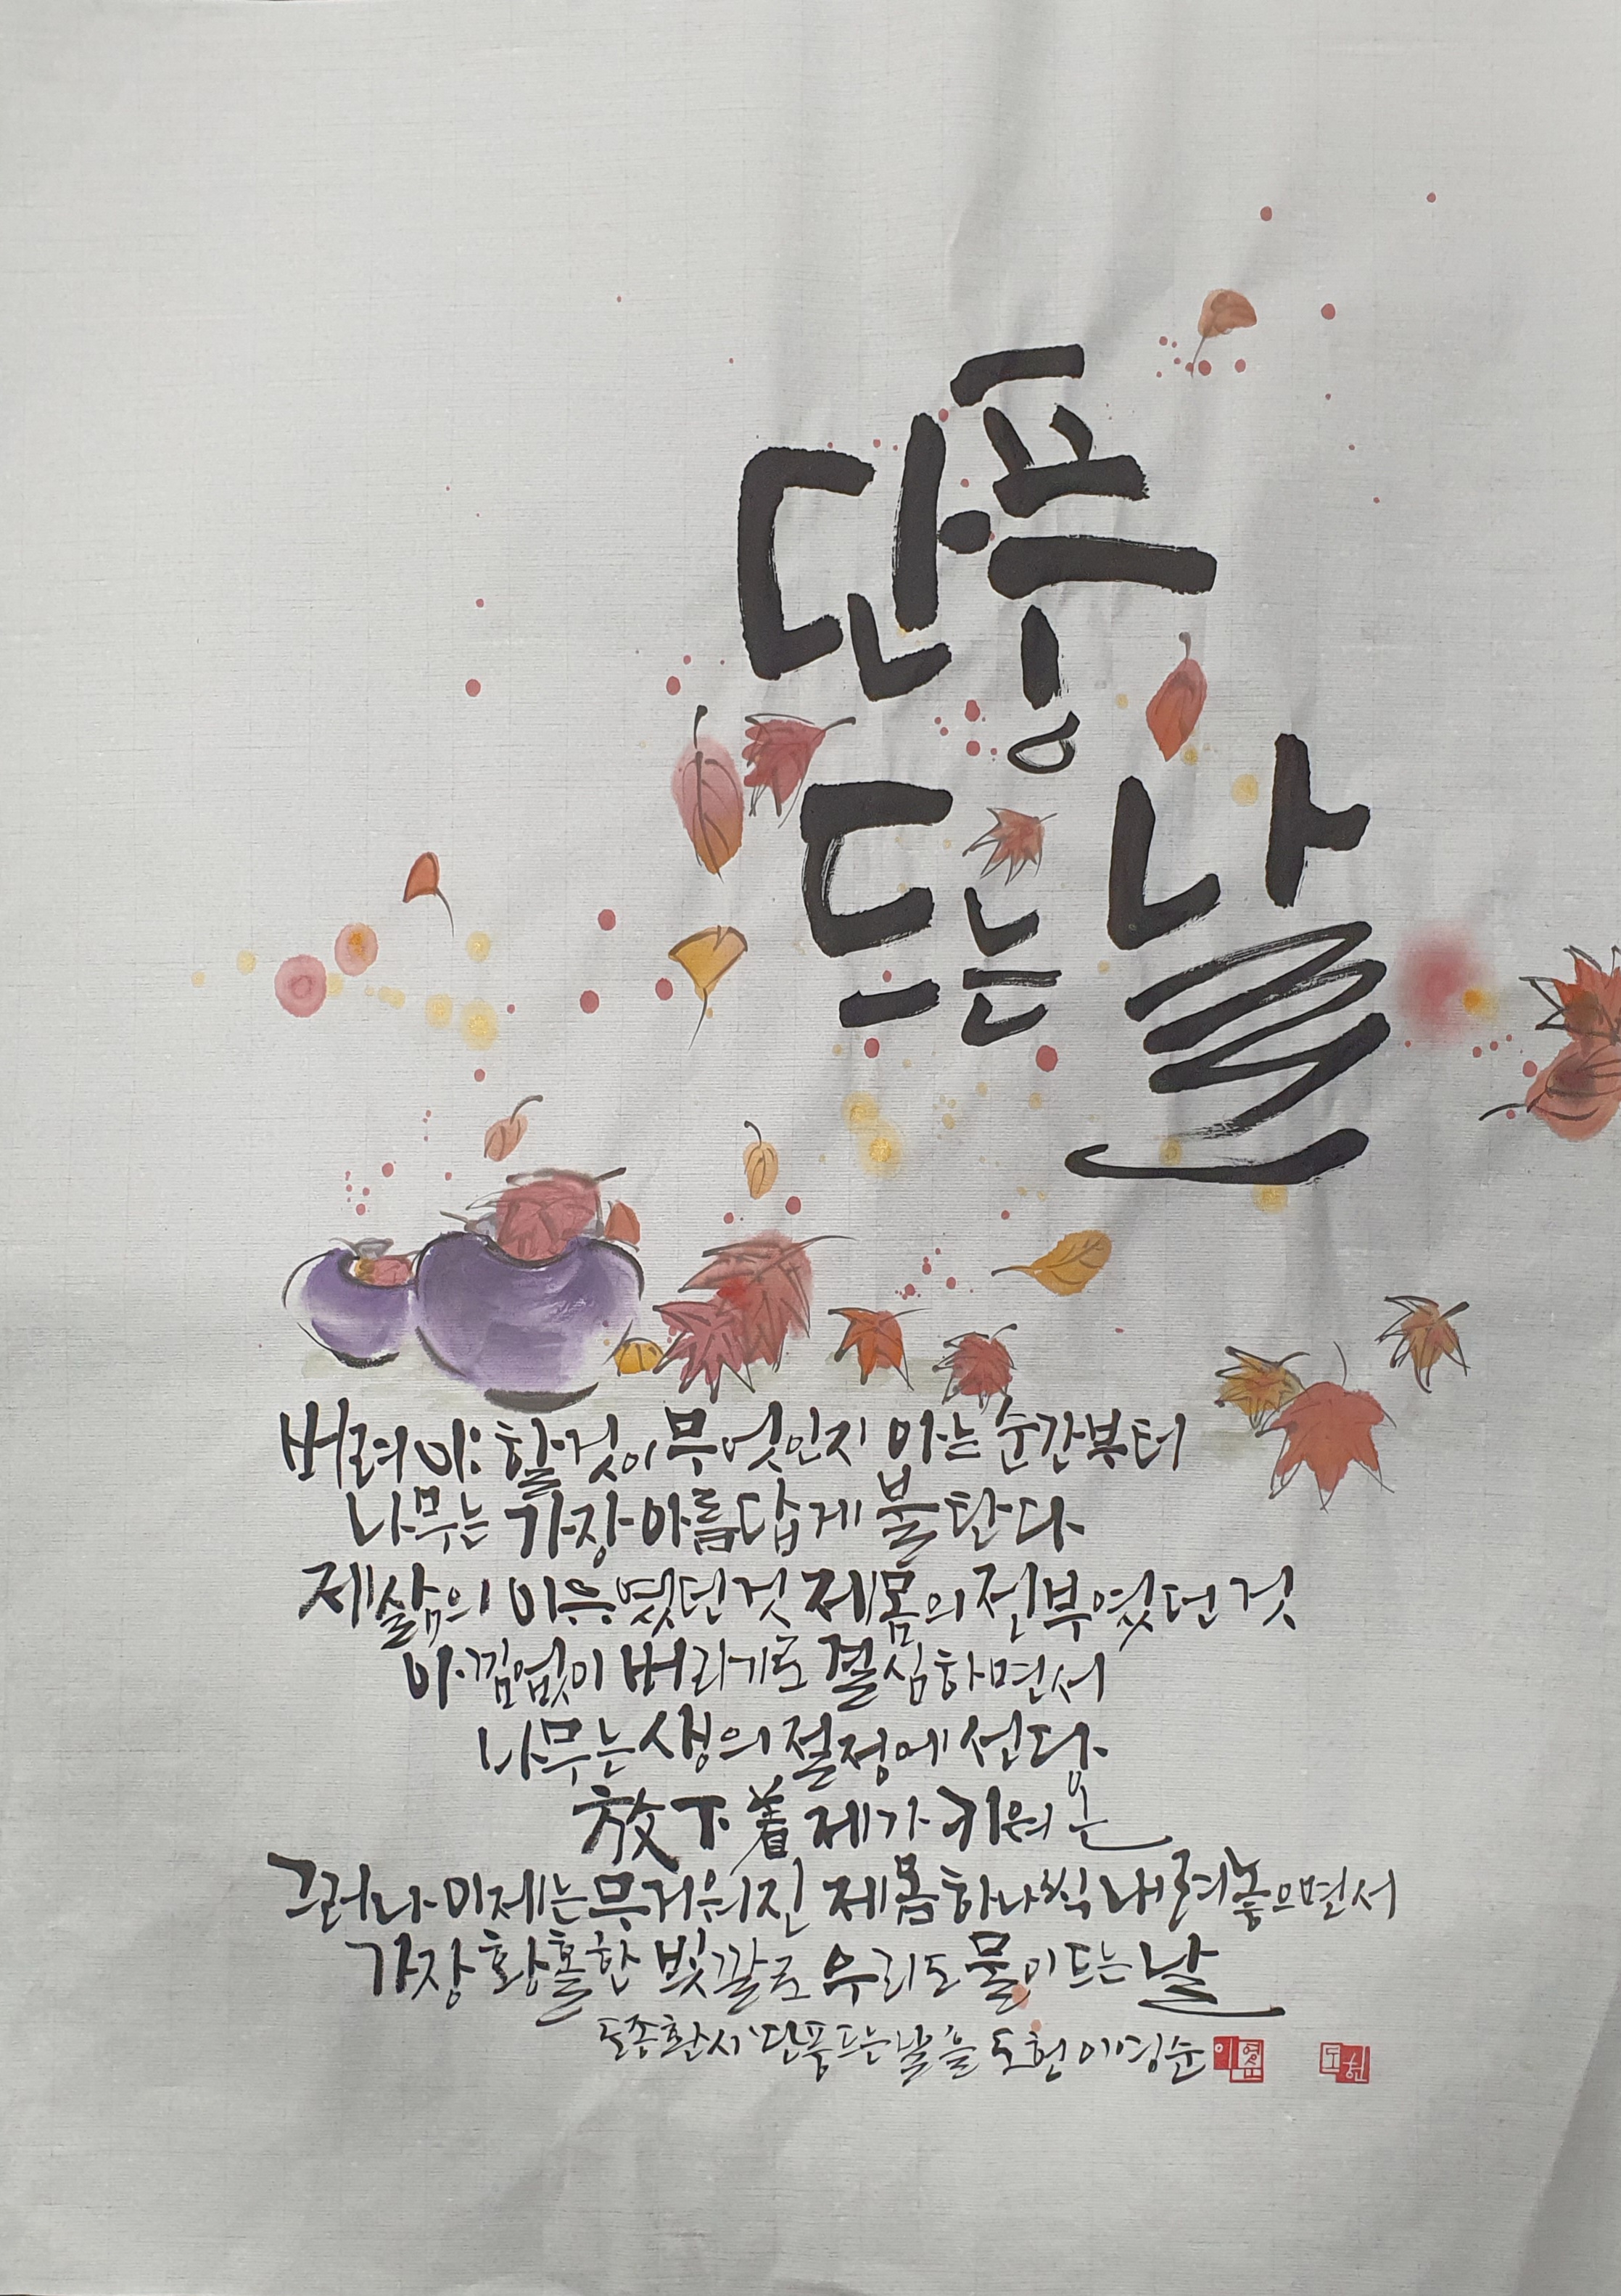 단풍
드는 날
버려야 할 것이 무엇인지 아는 순간부터
나무는 가장 아름답게 불탄다
제 삶의 이유였던 것 제 몸의 전부였던 것
아낌없이 버리기로 결심하면서
나무는 생의 절정에 선다
放下着 제가 키워 온
그러나 이제는 무거워진 제 몸 하나씩 내려놓으면서
가장 황홀한 빛깔로 우리도 물이 드는 날
도종환 시 '단풍드는 날'을 도헌 이영순
이영순 도헌